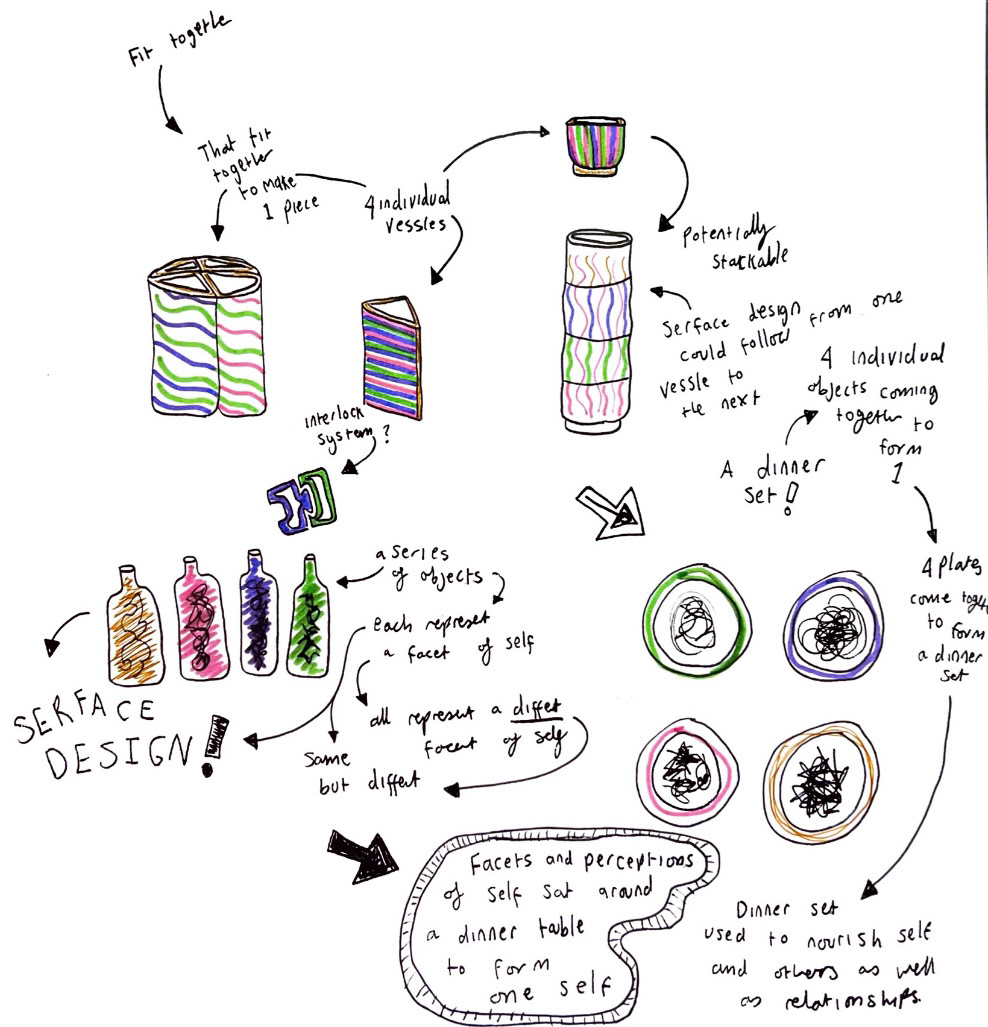 Fit togetle
That fit
together
to make
1 piece
4 individual
vessles
Potentially
stackable
Serface design
could follow from one
vessle to
the next
interlock
system?
4 individual
objects coming
together to
form
1
A dinner
set!
4 plates
come togeth
to form
a dinner
set
a series
of objects
each represet
a facet of self
all represent a diffet
facent of self
Same
but diffet
SERFACE
DESIGN!
Facets and perceptions
of self sat around
a dinner table
to form
one self
Dinner set
used to nourish self
and others as well
as relationships.